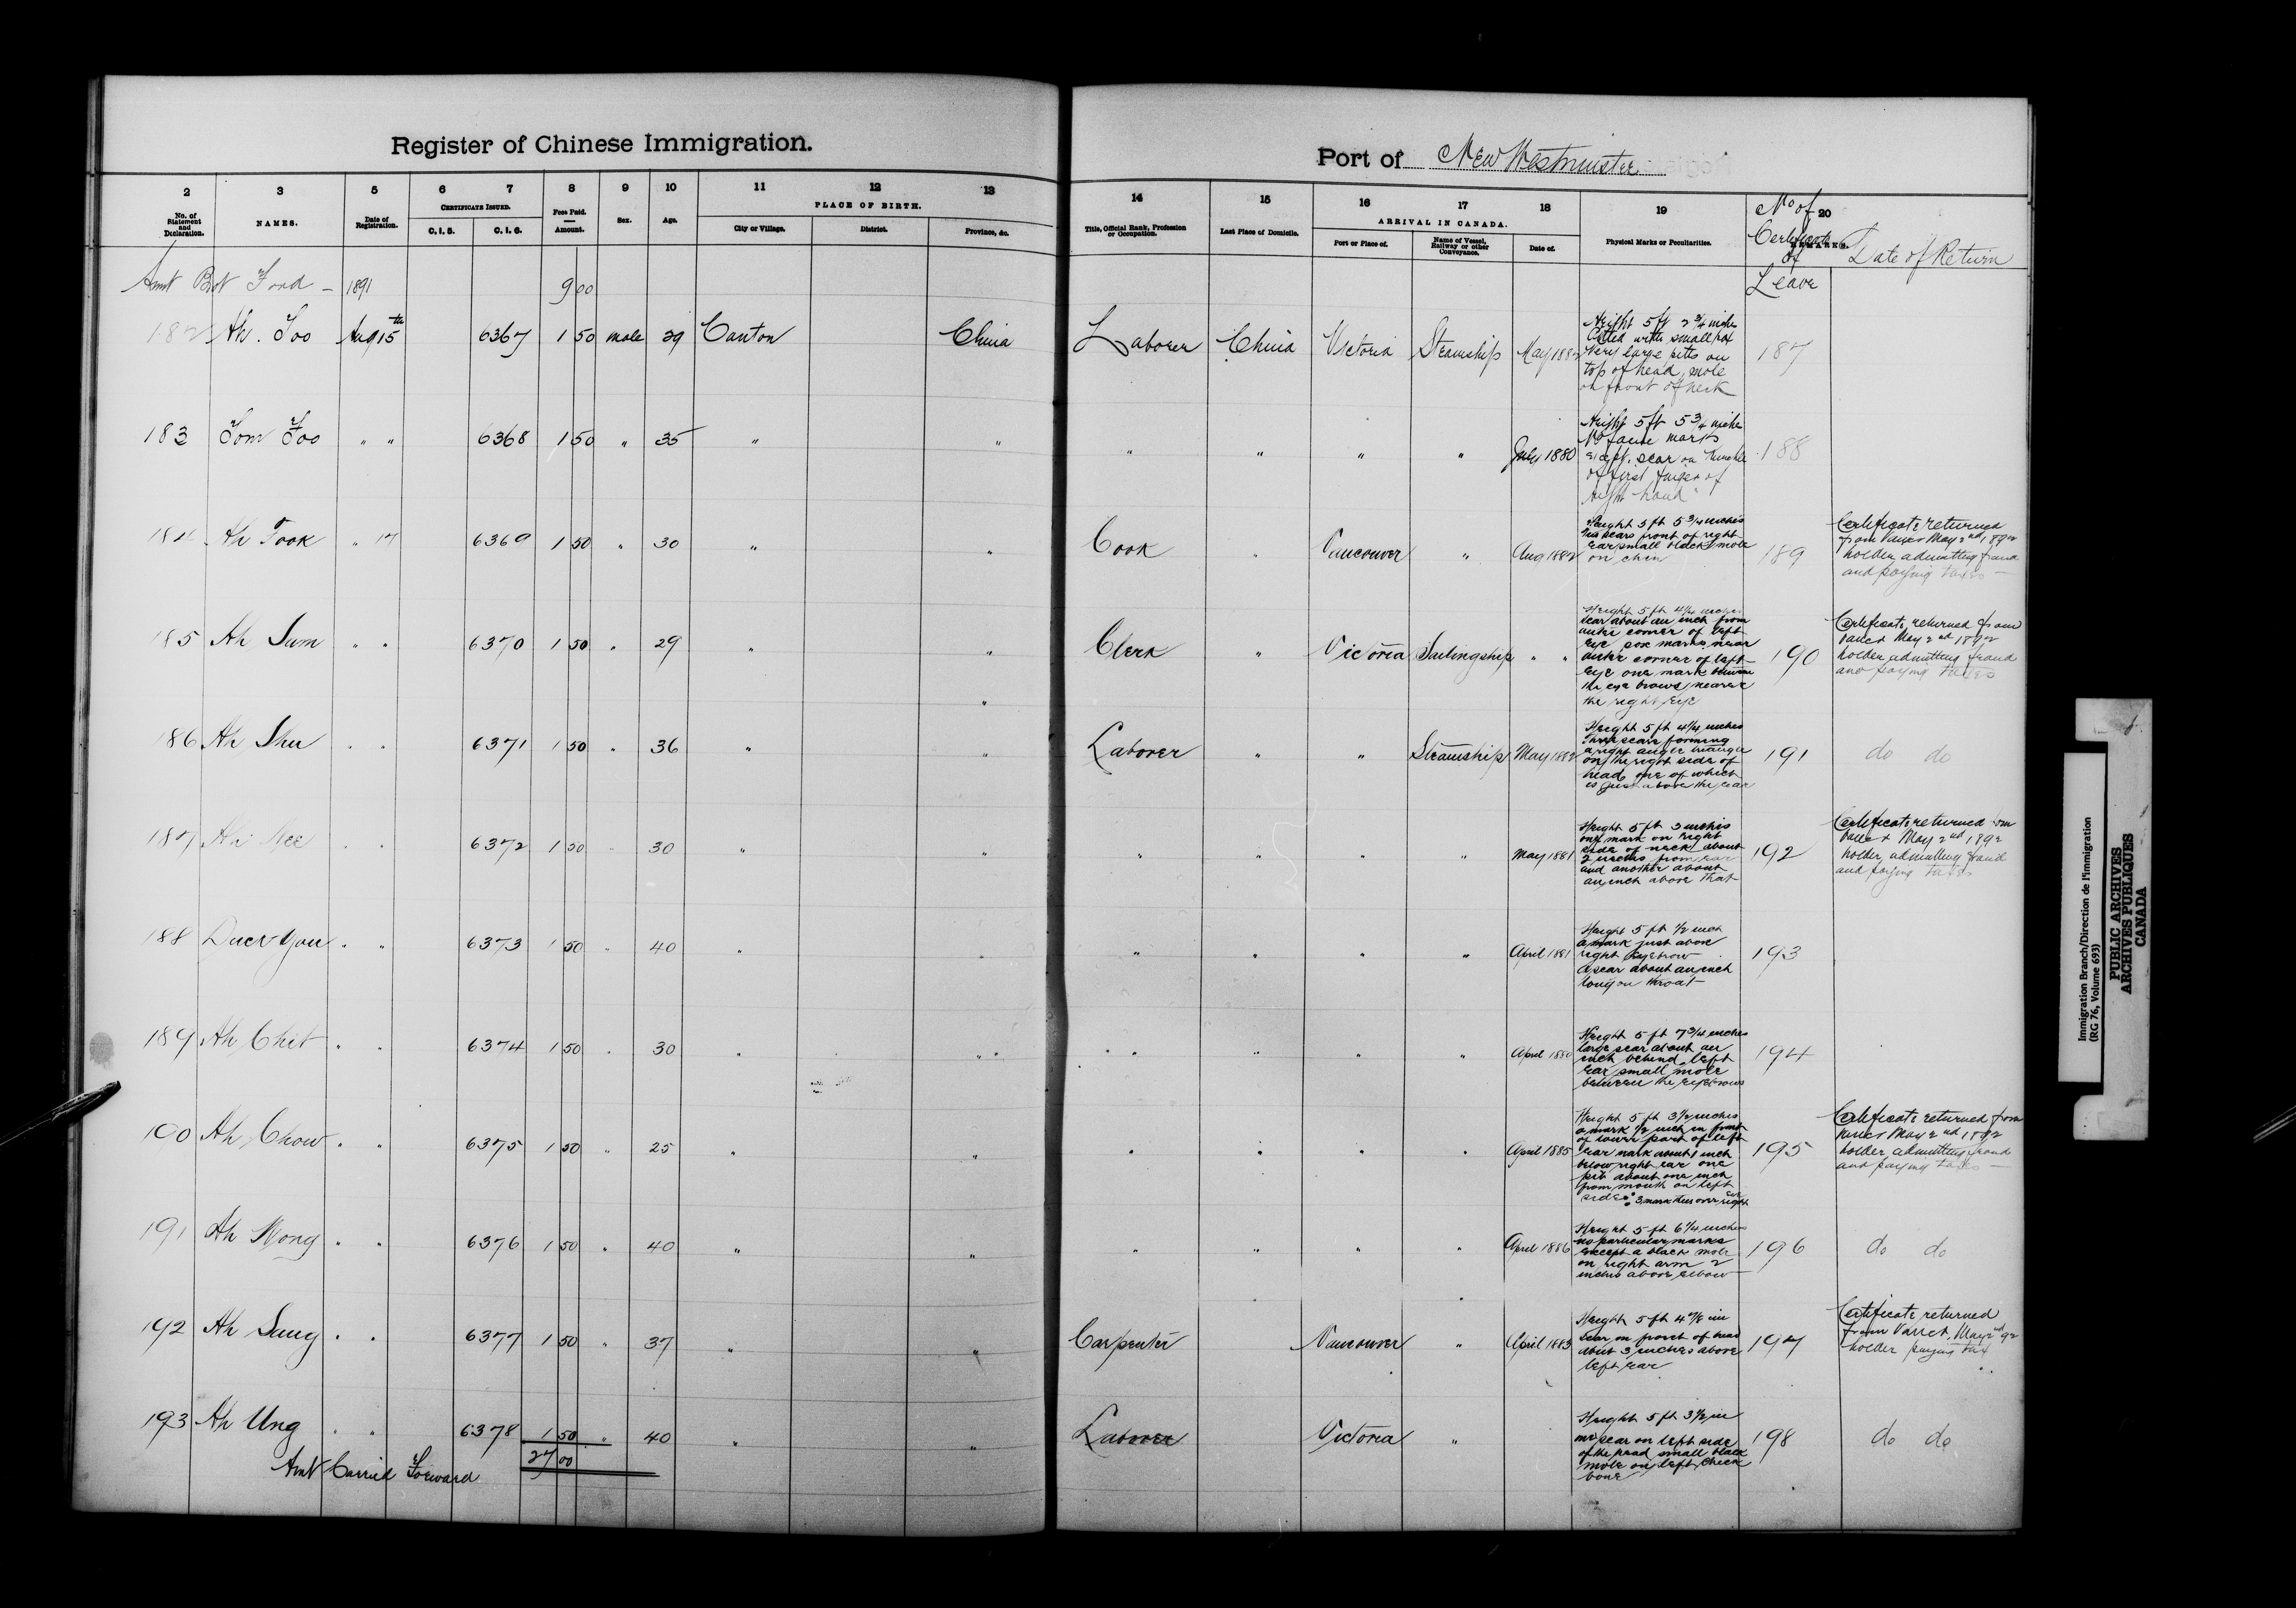 Register of Chinese Immigration.
Port of New Westminster
2 3 5 6 7 8 9 10 11 12 13 14 15 16 17 18 19 20
No. of Statement and Declaration. NAMES. Date of Registration. CERTIFICATE ISSUED. C. I. 5. C. I. 6. Fees Paid. Amount. Sex. Age. PLACE OF BIRTH. City or Village. District. Province, &c.
Title, Official Rank, Profession or Occupation. Last Place of Domicile. ARRIVAL IN CANADA. Port or Place of. Name of Vessel, Railway or other Conveyance. Date of. Physical Marks or Peculiarities. REMARKS.
No of Certificate of Leave
Date of Return
Amt Bot Ford - 1891 9 00
182 Ah. Foo Aug 15th 6367 1 50 male 29 Canton China Laborer China Victoria Steamship May 1882
Height 5 ft 2 3/4 inches
Pitted with small pox
Very large pits on
top of head, mole
on front of neck
187
183 Tom Foo " " 6368 1 50 " 35 " " " " " " July 1880
Height 5 ft 5 3/4 inches
No facial marks
except scar on knuckle
of first finger of
right hand
188
184 Ah Took " 17 6369 1 50 " 30 " " Cook " Vancouver " Aug 1882
Height 5 ft 5 3/4 inches
scars front of right
Ear small black mole
on chin
189
Certificate returned
from Vancr May 2nd 1892
holder admitting fraud
and paying taxes
185 Ah Sum " " 6370 1 50 " 29 " " Clerk " Victoria Sailingship " "
Height 5 ft 4 1/4 inches
scar about an inch from
outer corner of left
Eye pox marks near
outer corner of left
Eye one mark between
the eye brows nearer
the right Eye
190
Certificate returned from
Vancr May 2nd 1892
holder admitting fraud
and paying taxes
186 Ah Shu " " 6371 1 50 " 36 " " Laborer " " Steamship May 1882
Height 5 ft 4 1/4 inches
Three scars forming
a right angle triangle
on the right side of
head one of which
is just above the ear
191
do do
187 Ah Nee " " 6372 1 50 " 30 " " " " " " May 1881
Height 5 ft 3 inches
one mark on right
side of neck about
2 inches from ear
and another about
an inch above that
192
Certificate returned from
Vancr May 2nd 1892
holder admitting fraud
and paying taxes
188 Duck You " " 6373 1 50 " 40 " " " " " " April 1881
Height 5 ft 1/2 inch
a mark just above
right Eyebrow
a scar about an inch
long on throat
193
189 Ah Chit " " 6374 1 50 " 30 " " " " " " April 1880
Height 5 ft 7 3/4 inches
large scar about an
inch behind left
Ear small mole
between the eyebrows
194
190 Ah Chow " " 6375 1 50 " 25 " " " " " " April 1885
Height 5 ft 3 1/2 inches
a mark 1/2 inch in front
of lower part of left
Ear mark about 1 inch
below right ear one
pit about one inch
from mouth on left
side
195
Certificate returned from
Vancr May 2nd 1892
holder admitting fraud
and paying taxes
191 Ah Wong " " 6376 1 50 " 40 " " " " " " April 1886
Height 5 ft 6 1/4 inches
no particular marks
except a black mole
on right arm 2
inches above elbow
196
do do
192 Ah Sang " " 6377 1 50 " 37 " " Carpenter Vancouver " April 1883
Height 5 ft 4 7/8 in
scar on front of head
about 3 inches above
left ear
197
Certificate returned
from Vancr, May 2nd 92
holder paying tax
193 Ah Ung " " 6378 1 50 " 40 " " Laborer Victoria "
Height 5 ft 3 1/2 in
scar on left side
of the head small black
mole on left cheek
bone
198
do do
Amt Carried Forward 27 00
Immigration Branch/Direction de l'immigration
(RG 76, Volume 693)
PUBLIC ARCHIVES
ARCHIVES PUBLIQUES
CANADA